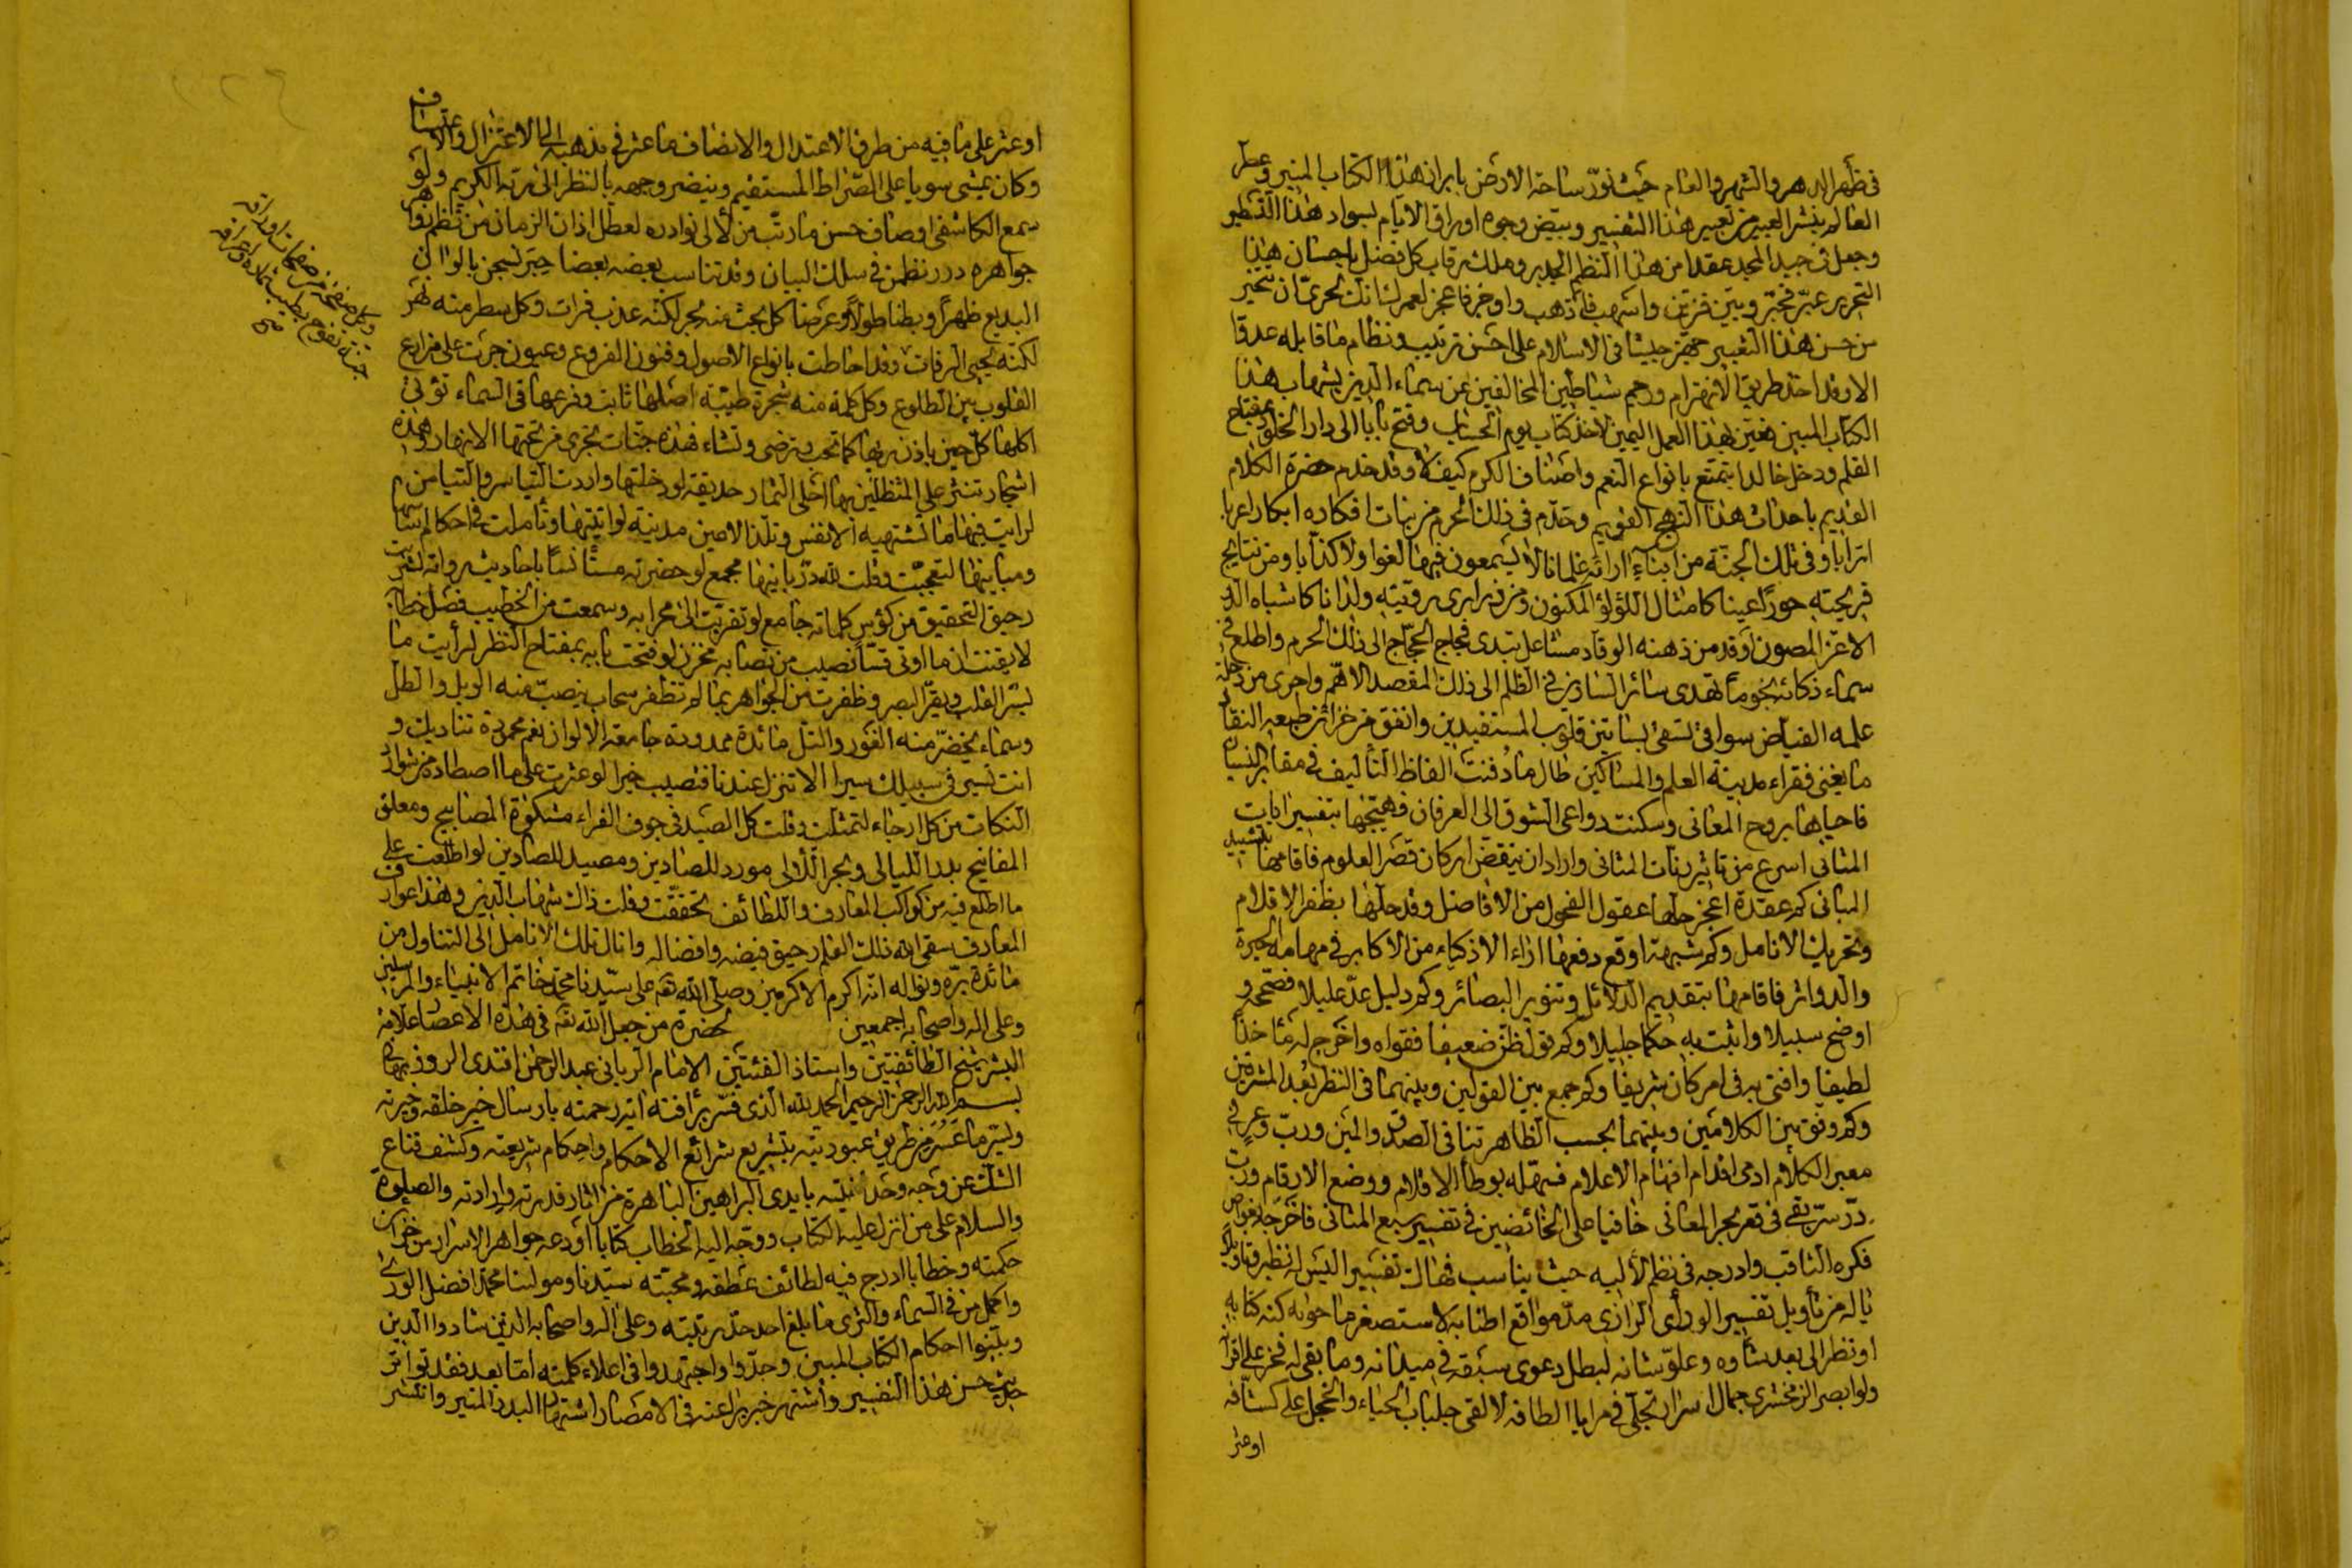 في ظهر الدهر والشهر والعام حيث نوّر ساحة الارض بابراز هذا الكتاب المنير وعطر
العالم بنشر العبير من تعبير هذا التفسير وبيّض وجوه اوراق الايام بسواد هذا التسطير
وجعل في جيد المجد عقدا من هذا النظم الجدير وملك رقاب كل فضل باحسان هذا
التحرير عبّر فحبّر وبيّن فزيّن واسهب فاذهب واوجز فاعجز لعمر لسانك لحريّ ان تخير
من حسن هذا التعبير جهز جيشا في الاسلام على احسن ترتيب ونظام ما قابله عدو
الا وقد اخذ طريق الانهزام ورجم شياطين المخالفين عن سماء الدين بشهاب هذا
الكتاب المبين فعين هذا العمل اليمين لاخذ كتاب يوم الحساب وفتح بابا الى دار الخلد بمفتاح
القلم ودخل خالدا يتمتع بانواع النعم واصناف الكرم كيف لا وقد خدم حضرة الكلام
القديم باحداث هذا النهج القويم وخدم في ذلك الحرم من بنات افكاره ابكارا عربا
اترابا وفي تلك الجنة من ابناء ارائه غلمانا لا يسمعون فيها لغوا ولا كذابا ومن نتايج
قريحته حورا عينا كامثال اللؤلؤ المكنون ومن ذراري رويته ولدانا كاشباه الدر
الاعز المصون وقد من ذهنه الوقاد مشاعل تبدي فجاج الحجاج الى ذلك الحرم واطلع في
سماء ذكائه نجوما تهدي سائر السارين في الظلم الى ذلك المقصد الاهم واجرى من دجلة
علمه الفياض سواقي تسقي بساتين قلوب المستفيدين وانفق من خزائن طبعه النقاد
ما يغني فقراء مدينة العلم والمساكين طال ما دفنت الفاظ التأليف في مقابر النسيان
فاحياها بروح المعاني وسكنت دواعي الشوق الى العرفان فهيّجها بتفسير ايات
المثاني اسرع من تاثير رنات المثاني واراد ان ينقض اركان قصر العلوم فاقامها بتشييد
المباني كم عقدة اعجز حلها عقول الفحول من الافاضل وقد حلها بظفر الاقلام
وتحريك الانامل وكم شبهة اوقع دفعها اراء الاذكياء من الاكابر في مهامه الحيرة
والدوائر فاقامها بتقديم الدلائل وتنوير البصائر وكم دليل عدّ عليلا فصححه و
اوضح سبيلا واثبت به حكما جليلا وكم قول ظن ضعيفا فقواه واخرج له مأخذا
لطيفا وافتى به في امر كان شريفا وكم جمع بين القولين وبينهما في النظر بعد المشرقين
وكم وفق بين الكلامين وبينهما بحسب الظاهر تنافي الصدق والمين وربّ وعر في
معبر الكلام ادمى اقدام افهام الاعلام فسهله بوطأ الاقلام ووضع الارقام وربّ
درّ سرّ بقي في قعر بحر المعاني خافيا على الخائضين في تفسير سبع المثاني فاخرجه بغواص
فكره الثاقب وادرجه في نظم لأليه حيث يناسب فهاك تفسير اليس له نظير وتاويلا
ياله من تأويل تفسير لو رأى الرازي مدّ مواقع اطنابه لاستصغر ما حواه كنه كتابه
او نظر الى بعد شأوه وعلوّ شانه لبطل دعوى سبقه في ميدانه وما بقي له فخر على اقرانه
ولو ابصر الزمخشري جمال اسرار تجلّى في مرايا الطافه لالقى جلباب الحياء والخجل على كشافه
او عثر
او عثر على ما فيه من طرف الاعتدال والانصاف ما عثر في مذهبه الى الاعتزال والاعتساف
وكان يمشي سويا على الصراط المستقيم وينضر وجهه بالنظر الى ربه الكريم ولو
سمع الكاشفي اوصاف حسن ما رتّب من لألي نوادره لعطل اذان الزمان من نظم جواهره
جواهره درر نظمن في سلك البيان وقد تناسب بعضه بعضا حبر نسجن بالوان
البديع ظهرا وبطنا طولا وعرضا كل بحث منه بحر لكنه عذب فرات وكل سطر منه نهر
لكنّه يحيي الرفات وقد احاطت بانواع الاصول وفنون الفروع وعيون جرت على مزارع
القلوب بين الطلوع وكل كلمة منه شجرة طيبة اصلها ثابت وفرعها في السماء تؤتي
اكلها كل حين باذن ربها كما تحب وترضى وتشاء فهذه جنات تجري من تحتها الانهار وهذه
اشجار تنثر على المتظلين بها احلى الثمار حديقة لو دخلتها واردت التياسر والتيامن
لرايت فيها ما تشتهيه الانفس وتلذ الاعين مدينة لو اتيتها وتأملت في احكام اساسها
ومبانيها لتعجبت وقلت لله درّ بانيها مجمع لو حضرته مستأنسا باحاديث رواته لشربت
رحيق التحقيق من كؤس كلماته جامع لو تقربت الى محرابه وسمعت من الخطيب فصل خطابه
لايقنت ان ما اوتي قسّا نصيب من نصابه مخزن لو فتحت بابه بمفتاح النظر لرأيت ما
يسرّ القلب ويقرّ البصر وظفرت من الجواهر بما لم تظفر سحاب ينصبّ منه الوبل والطل
وسماء يخضرّ منه الغور والتل مائدة ممدودة جامعة الالوان نعم محمودة تناديك و
انت تسير في سبيلك سيرا الا تنزل عندنا فتصيب خيرا لو عثرت على ما اصطاده من شوارد
النكات من كل ارجاء لتمثلت وقلت كل الصيد في جوف الفراء مشكوة المصابيح ومعلق
المفاتيح بدر الليالي وبحر اللألي مورد للصادين ومصيد للصادين لو اطلعت على
ما اطلع فيه من كواكب المعارف واللطائف تحققت وقلت ذاك شهاب الدين وهذا عوارف
المعارف سقى الله تلك القلم رحيق فيضه وافضاله وانال تلك الانامل الى التناول من
مائدة برّه ونواله انّه اكرم الاكرمين وصلى الله تع على سيّدنا محمد خاتم الانبياء والمرسلين
وعلى اله واصحابه اجمعين لحضرة من جعل الله تع في هذه الاعصار علامة
البشر شيخ الطائفتين واستاذ الفئتين الامام الرباني عبد الرحمن افندي الروزبهاني
بسم الله الرحمن الرحيم الحمد لله الذي فسّر برأفته اية رحمته بارسال خير خلقه وخيرته
ويسّر ما عسر من طريق عبوديته بتشريع شرائع الاحكام واحكام شريعته وكشف قناع
الشك عن وجه وحدانيته بايدي البراهين الباهرة من اثار قدرته وارادته والصلوة
والسلام على من انزل عليه الكتاب ووجّه اليه الخطاب كتابا اودعه جواهر الاسرار من خزائن
حكمته وخطابا ادرج فيه لطائف عطفه ومحبته سيدنا ومولينا محمد افضل الورى
واكمل من في السماء والثرى ما بلغ احد حدّ رتبته وعلى اله واصحابه الذين شادوا الدين
وبيّنوا احكام الكتاب المبين وجدّوا واجتهدوا في اعلاء كلمته اما بعد فقد تواتر
حديث حسن هذا التفسير واشتهر خبر براعته في الامصار اشتهار البدر المنير وانتشر
وكل صفحة من صفحات اوراقه
جنة تفوح بطيب
صح